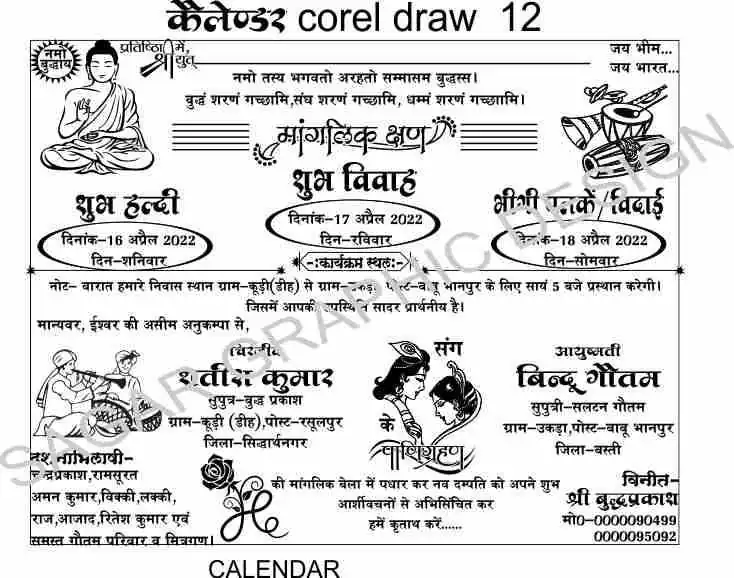 कैलेण्डर corel draw 12
नमो बुद्धाय
प्रतिष्ठा में,
श्रीयुत्
जय भीम...
जय भारत...
नमो तस्य भगवतो अरहतो सम्मासम बुद्धस्स।
बुद्धं शरणं गच्छामि,संघ शरणं गच्छामि, धम्मं शरणं गच्छाामि।
मांगलिक क्षण
शुभ हल्दी
दिनांक-16 अप्रैल 2022
दिन-शनिवार
शुभ विवाह
दिनांक-17 अप्रैल 2022
दिन-रविवार
भीगी पलकें/विदाई
दिनांक-18 अप्रैल 2022
दिन-सोमवार
-ःकार्यक्रम स्थलः-
नोट- बारात हमारे निवास स्थान ग्राम-कूड़ी(डीह) से ग्राम-उकड़ा, पोस्ट-बाबू भानपुर के लिए सायं 5 बजे प्रस्थान करेगी।
जिसमें आपकी उपस्थिति सादर प्रार्थनीय है।
मान्यवर, ईश्वर की असीम अनुकम्पा से,
चिरंजीव
सतीश कुमार
सुपुत्र-बुद्ध प्रकाश
ग्राम-कूड़ी (डीह),पोस्ट-रसूलपुर
जिला-सिद्धार्थनगर
संग
के
पाणिग्रहण
आयुष्मती
बिन्दू गौतम
सुपुत्री-सलटन गौतम
ग्राम-उकड़ा,पोस्ट-बाबू भानपुर
जिला-बस्ती
दर्शनाभिलाषी-
चन्द्रप्रकाश,रामसूरत
अमन कुमार,विक्की,लक्की,
राज,आजाद,रितेश कुमार एवं
समस्त गौतम परिवार व मित्रगण।
की मांगलिक बेला में पधार कर नव दम्पति को अपने शुभ
आर्शीवचनों से अभिसिंचित कर
हमें कृताथ करें......
विनीत-
श्री बुद्धप्रकाश
मो0-0000090499
0000095092
SAGAR GRAPHIC DESIGN
CALENDAR